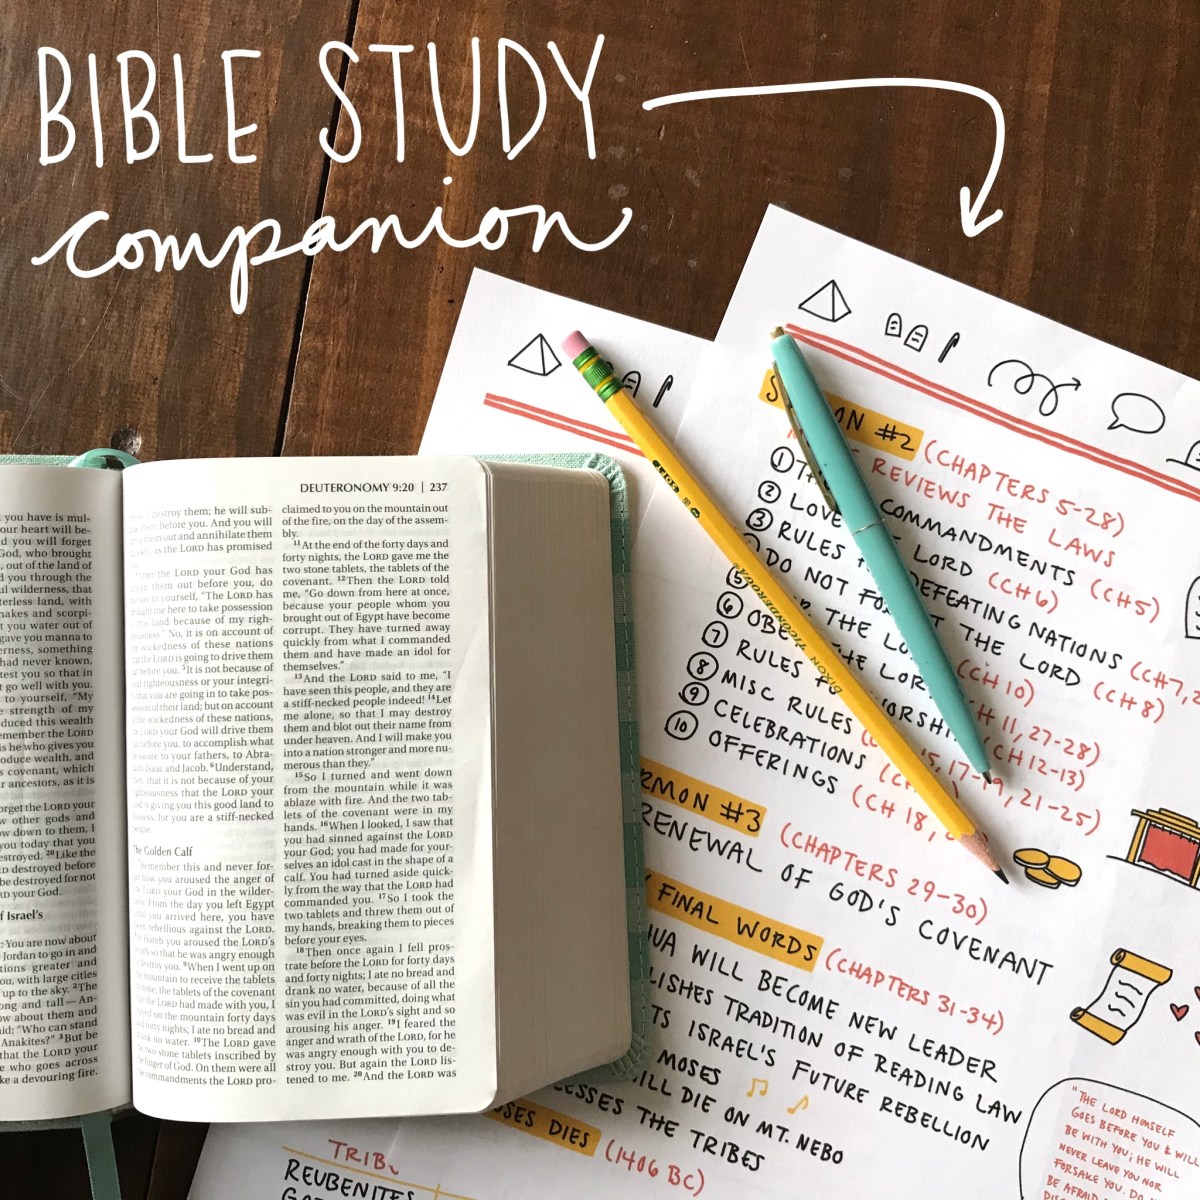 BIBLE STUDY
companion
DEUTERONOMY 9:20 | 237
you have is mul-
our heart will be-
d you will forget
God, who brought
, out of the land of
d you through the
ul wilderness, that
terless land, with
nakes and scorpi-
t you water out of
gave you manna to
erness, something
had never known,
test you so that in
t go well with you.
to yourself, "My
strength of my
duced this wealth
emember the LORD
is he who gives you
oduce wealth, and
s covenant, which
r ancestors, as it is
orget the LORD your
w other gods and
ow down to them, I
you today that you
estroyed. 20Like the
D destroyed before
be destroyed for not
RD your God.
f Israel's
: You are now about
Jordan to go in and
tions greater and
ou, with large cities
up to the sky. 2The
ong and tall—An-
ow about them and
aid: "Who can stand
Anakites?" 3But be
that the LORD your
e who goes across
ke a devouring fire.
destroy them; he will sub-
before you. And you will
them out and annihilate them
as the LORD has promised
the LORD your God has
them out before you, do
to yourself, "The LORD has
me here to take possession
this land because of my righ-
No, it is on account of
wickedness of these nations
the LORD is going to drive them
before you. 5It is not because of
righteousness or your integri-
that you are going to take pos-
of their land; but on account
the wickedness of these nations,
the LORD your God will drive them
before you, to accomplish what
he swore to your fathers, to Abra-
Isaac and Jacob. 6Understand,
that it is not because of your
righteousness that the LORD your
is giving you this good land to
possess, for you are a stiff-necked
people.
The Golden Calf
Remember this and never for-
how you aroused the anger of
the LORD your God in the wilder-
From the day you left Egypt
you arrived here, you have
been rebellious against the LORD.
Horeb you aroused the LORD's
so that he was angry enough
destroy you. 9When I went up on
the mountain to receive the tablets
of stone, the tablets of the covenant
the LORD had made with you, I
on the mountain forty days
forty nights; I ate no bread and
drank no water. 10The LORD gave
me two stone tablets inscribed by
the finger of God. On them were all
the commandments the LORD pro-
claimed to you on the mountain out
of the fire, on the day of the assem-
bly.
11At the end of the forty days and
forty nights, the LORD gave me the
two stone tablets, the tablets of the
covenant. 12Then the LORD told
me, "Go down from here at once,
because your people whom you
brought out of Egypt have become
corrupt. They have turned away
quickly from what I commanded
them and have made an idol for
themselves."
13And the LORD said to me, "I
have seen this people, and they are
a stiff-necked people indeed! 14Let
me alone, so that I may destroy
them and blot out their name from
under heaven. And I will make you
into a nation stronger and more nu-
merous than they."
15So I turned and went down
from the mountain while it was
ablaze with fire. And the two tab-
lets of the covenant were in my
hands. 16When I looked, I saw that
you had sinned against the LORD
your God; you had made for your-
selves an idol cast in the shape of a
calf. You had turned aside quick-
ly from the way that the LORD had
commanded you. 17So I took the
two tablets and threw them out of
my hands, breaking them to pieces
before your eyes.
18Then once again I fell pros-
trate before the LORD for forty days
and forty nights; I ate no bread and
drank no water, because of all the
sin you had committed, doing what
was evil in the LORD's sight and so
arousing his anger. 19I feared the
anger and wrath of the LORD, for he
was angry enough with you to de-
stroy you. But again the LORD lis-
tened to me. 20And the LORD was
#2 (CHAPTERS 5-28)
REVIEWS THE LAWS
1 COMMANDMENTS (CH 5)
2 LOVE LORD (CH 6)
3 RULES DEFEATING NATIONS (CH 7,
DO NOT FORGET THE LORD (CH 8)
5 THE LO (CH 10)
6 OBEY THE LORD CH 11, 27-28)
7 RULES WORSHIP (CH 12-13)
8 MISC RULES 15, 17-19, 21-25)
9 CELEBRATIONS (CH
10 OFFERINGS (CH 18,
DIXON TICONDEROGA
SERMON #3 (CHAPTERS 29-30)
RENEWAL OF GOD'S COVENANT
FINAL WORDS (CHAPTERS 31-34)
HUA WILL BECOME NEW LEADER
LISHES TRADITION OF READING LAW
TS ISRAEL'S FUTURE REBELLION
MOSES
ILL DIE ON MT. NEBO
ESSES THE TRIBES
OSES DIES (1406 BC)
TRIB
REUBENITES
"THE LORD HIMSELF
GOES BEFORE YOU & WILL
BE WITH YOU; HE WILL
NEVER LEAVE YOU NOR
FORSAKE YOU. DO
BE AFRAID